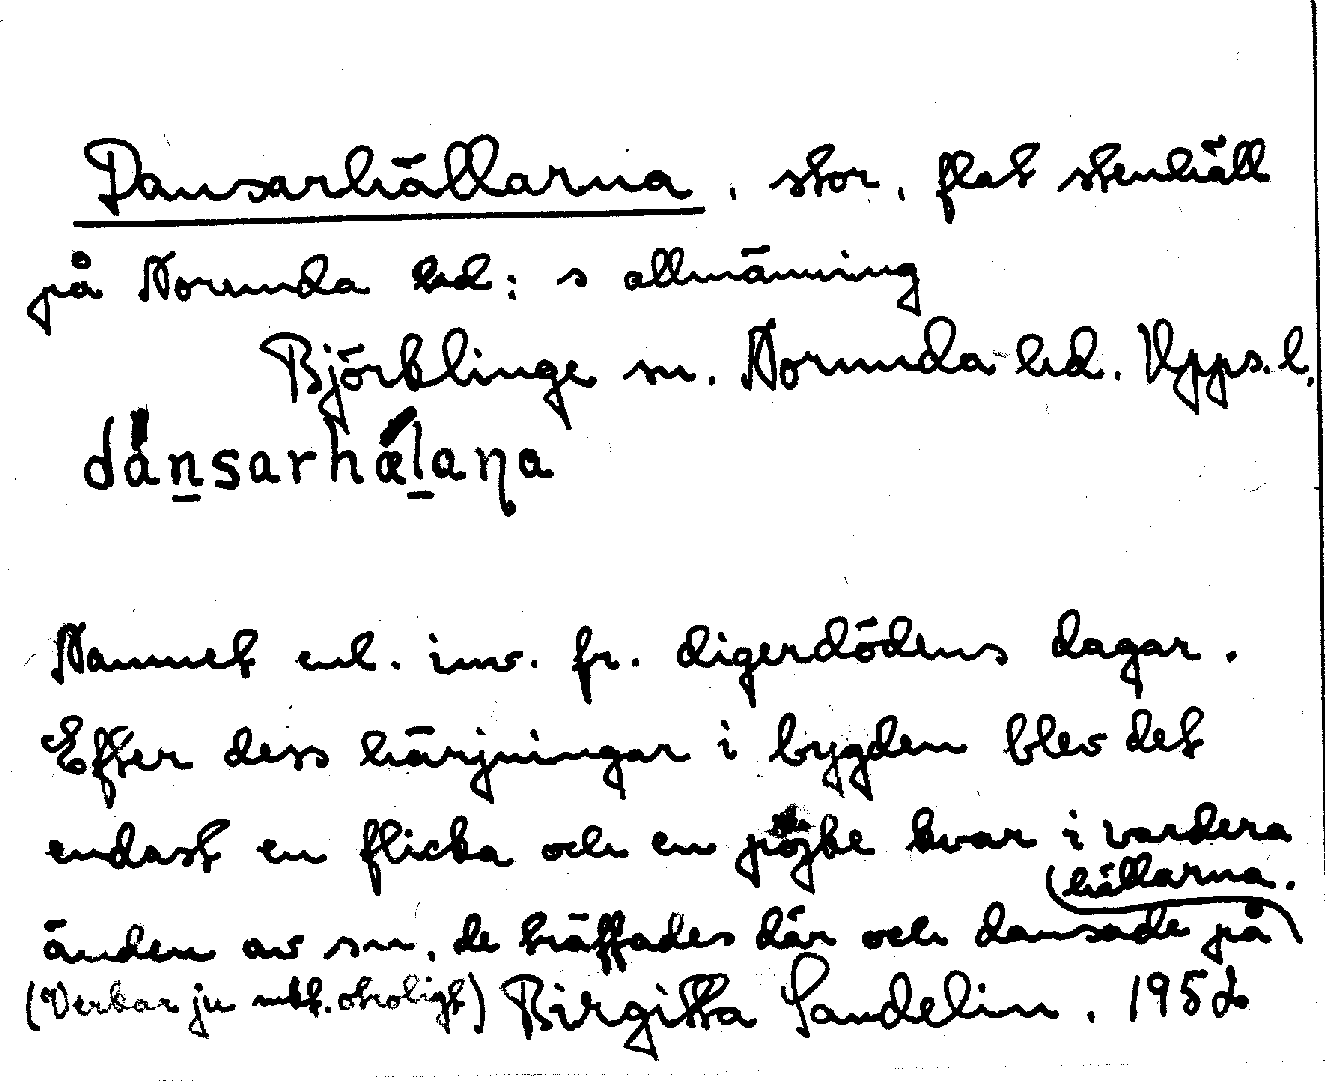 Dansarhällarna, stor, flat stenhäll
på Norunda hd:s allmänning
Björklinge sn. Norunda hd. Upps.l.
dansarhälaṇa
Namnet enl. inv. fr. digerdödens dagar.
Efter dess härjningar i bygden blev det
endast en flicka och en pojke kvar i vardera
änden av sn, de träffades där och dansade på
hällarna.
(Verkar ju mkt. otroligt) Birgitta Sandelin. 1952